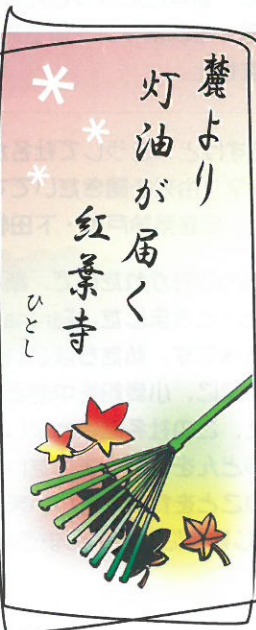 麓より
灯油が届く
紅葉寺
ひとし